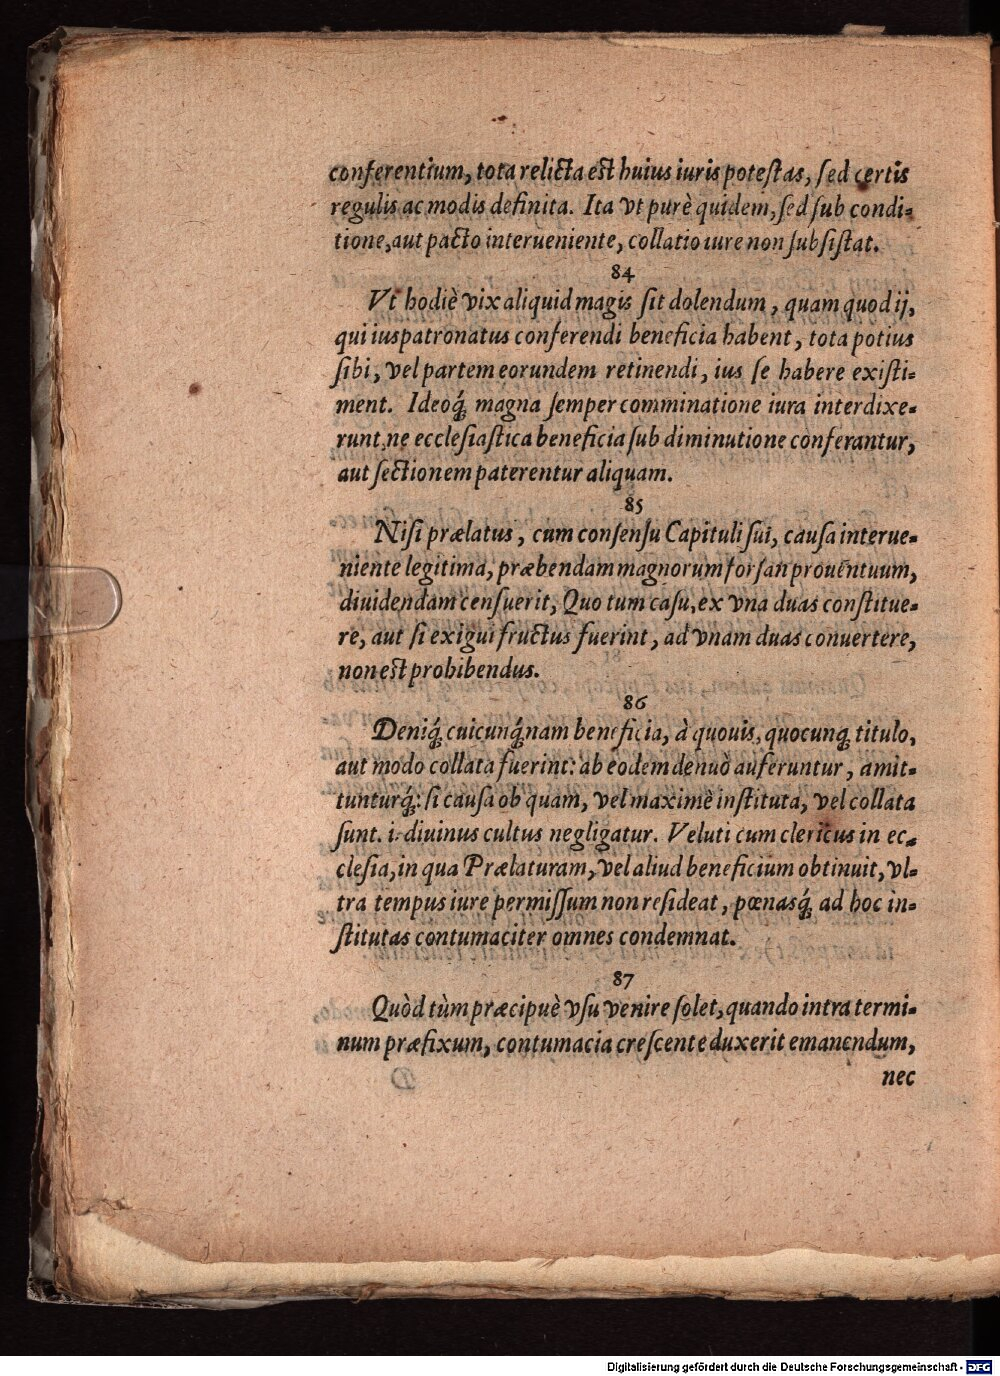 conferentium, tota relicta est huius iuris potestas, ſed certis
regulis ac modis definita. Ita vt purè quidem, ſed ſub condi-
tione, aut pacto interueniente, collatio iure non ſubſiſtat.
84
Vt hodiè vix aliquid magis ſit dolendum, quam quod ij,
qui iuspatronatus conferendi beneficia habent, tota potius
ſibi, vel partem eorundem retinendi, ius ſe habere exiſti-
ment. Ideoq́; magna ſemper comminatione iura interdixe-
runt, ne eccleſiaſtica beneficia ſub diminutione conferantur,
aut ſectionem paterentur aliquam.
85
Niſi prælatus, cum conſenſu Capituli ſui, cauſa interue-
niente legitima, præbendam magnorum forſan prouentuum,
diuidendam cenſuerit, Quo tum caſu, ex vna duas conſtitue-
re, aut ſi exigui fructus fuerint, ad vnam duas conuertere,
non est prohibendus.
86
Deniq́; cuicunq́; nam beneficia, à quouis, quocunq; titulo,
aut modo collata fuerint: ab eodem denuò auferuntur, amit-
tunturq́;: ſi cauſa ob quam, vel maximè inſtituta, vel collata
ſunt. i. diuinus cultus negligatur. Veluti cum clericus in ec-
cleſia, in qua Prælaturam, vel aliud beneficium obtinuit, vl-
tra tempus iure permiſſum non reſideat, pœnasq́; ad hoc in-
ſtitutas contumaciter omnes condemnat.
87
Quòd tùm præcipuè vſu venire ſolet, quando intra termi-
num præfixum, contumacia creſcente duxerit emanendum,
nec
Digitalisierung gefördert durch die Deutsche Forschungsgemeinschaft - DFG